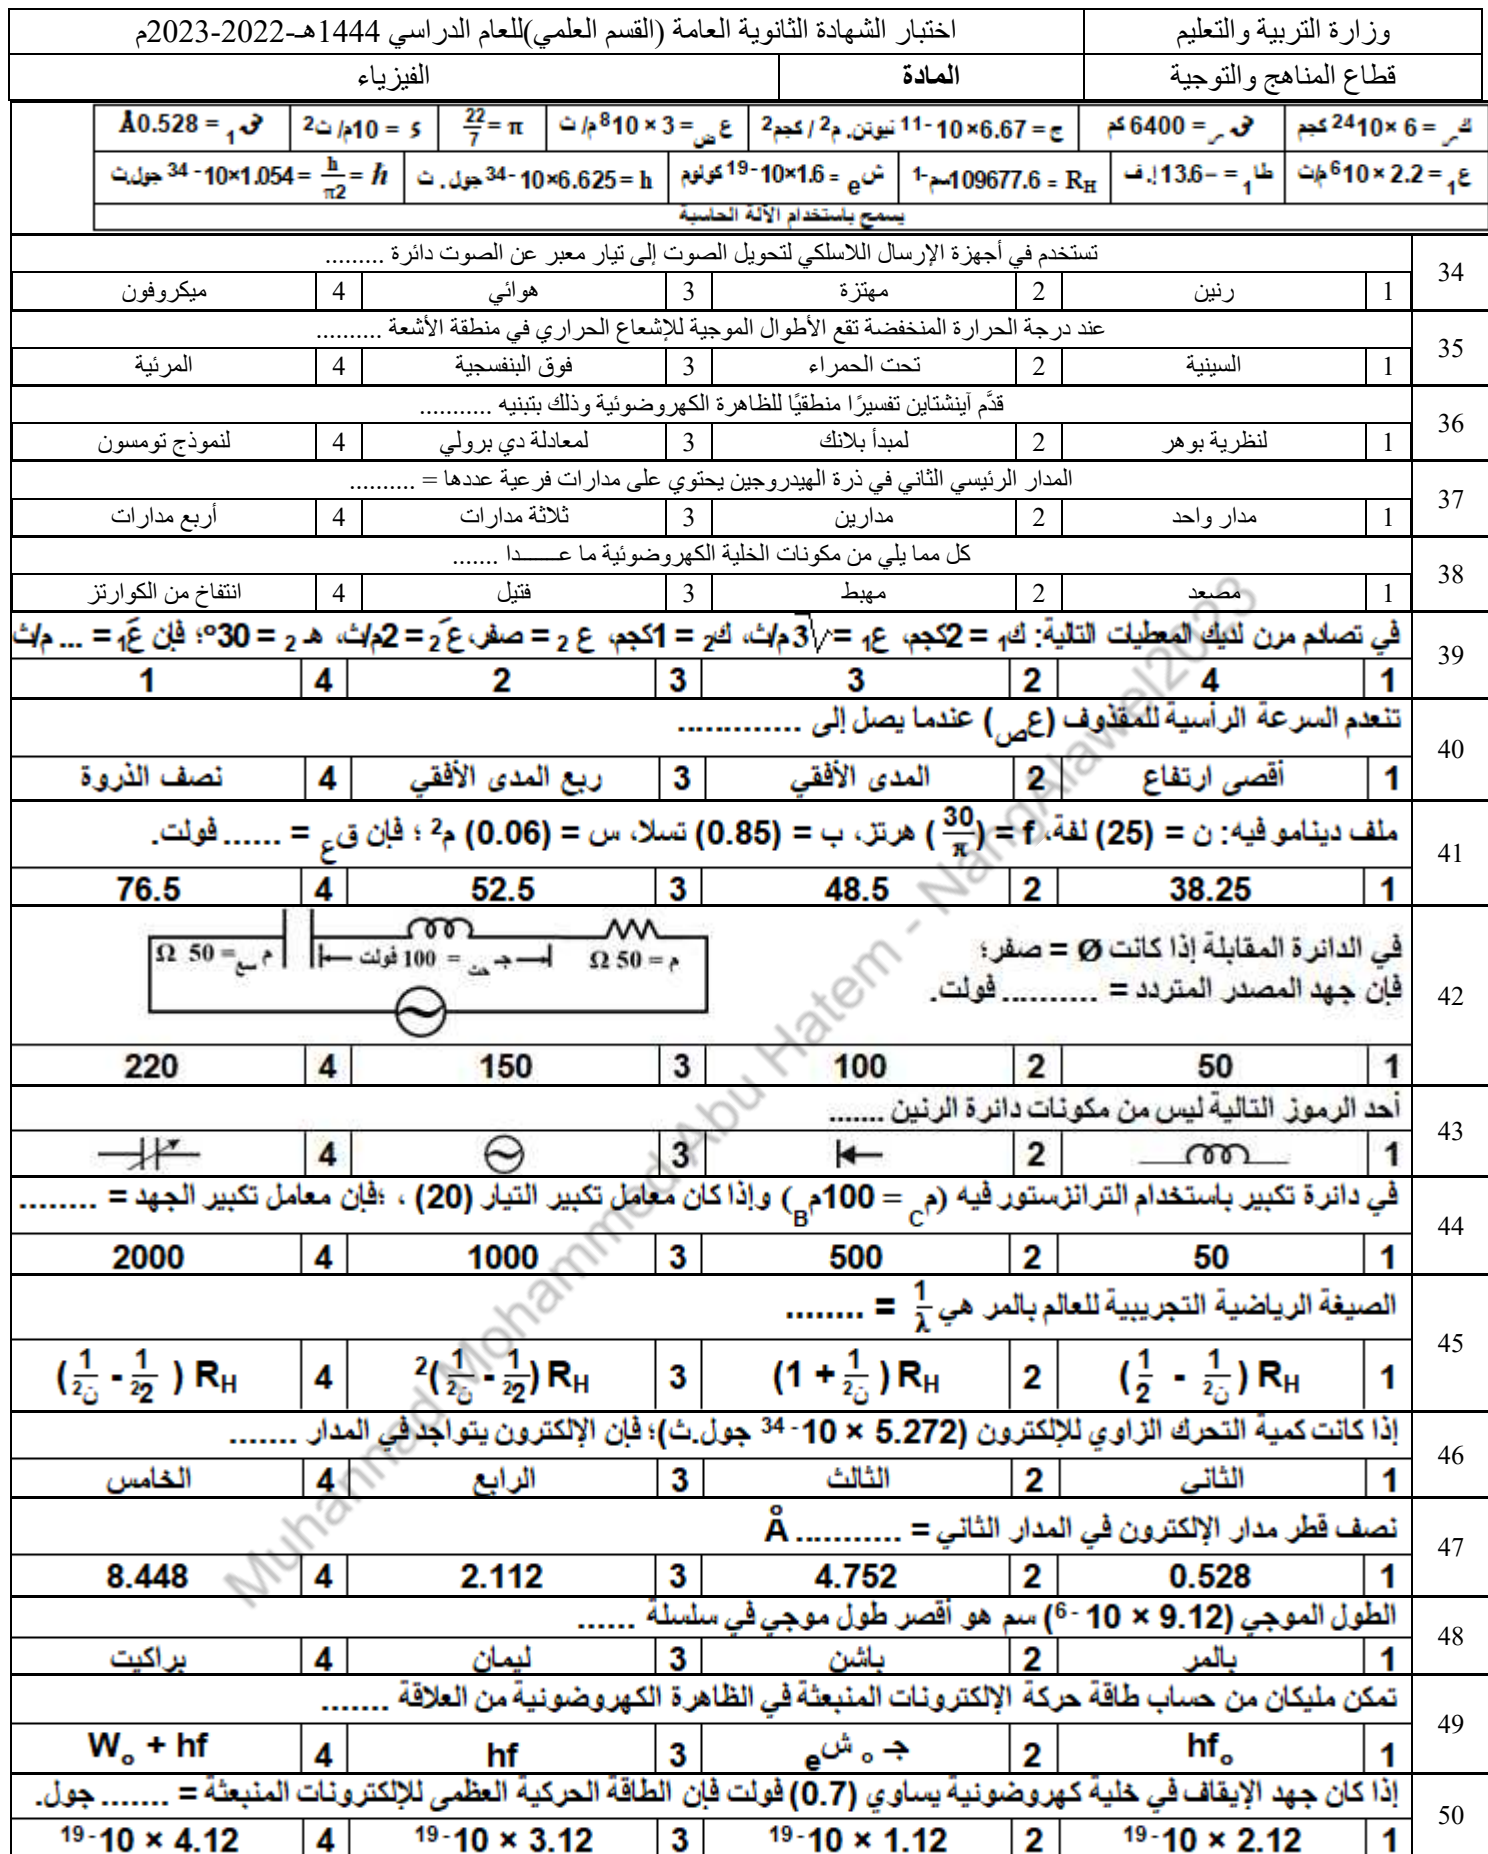 وزارة التربية والتعليم
اختبار الشهادة الثانوية العامة (القسم العلمي)للعام الدراسي 1444هـ-2022-2023م
قطاع المناهج والتوجية
المادة
الفيزياء
كـر = 6 ×10^24 كجم
نق ر = 6400 كم
ج = 6.67×10^-11 نيوتن. م^2 / كجم^2
ع ض = 3 × 10^8 م/ ث
π = 22/7
ء = 10م/ ث^2
نق 1 = 0.528Å
ع1 = 2.2 × 10^6م/ث
طا1 = -13.6 إ. ف
R_H = 109677.6سم^-1
ش e = 1.6×10^-19 كولوم
h = 6.625×10^-34 جول . ث
ℏ = h/π2 = 1.054×10^-34 جول.ث
يسمح باستخدام الآلة الحاسبة
34 تستخدم في أجهزة الإرسال اللاسلكي لتحويل الصوت إلى تيار معبر عن الصوت دائرة .........
1 رنين 2 مهتزة 3 هوائي 4 ميكروفون
35 عند درجة الحرارة المنخفضة تقع الأطوال الموجية للإشعاع الحراري في منطقة الأشعة ..........
1 السينية 2 تحت الحمراء 3 فوق البنفسجية 4 المرئية
36 قدَّم آينشتاين تفسيرًا منطقيًا للظاهرة الكهروضوئية وذلك بتبنيه ...........
1 لنظرية بوهر 2 لمبدأ بلانك 3 لمعادلة دي برولي 4 لنموذج تومسون
37 المدار الرئيسي الثاني في ذرة الهيدروجين يحتوي على مدارات فرعية عددها = ..........
1 مدار واحد 2 مدارين 3 ثلاثة مدارات 4 أربع مدارات
38 كل مما يلي من مكونات الخلية الكهروضوئية ما عـــــــدا .......
1 مصعد 2 مهبط 3 فتيل 4 انتفاخ من الكوارتز
39 في تصادم مرن لديك المعطيات التالية: ك1 = 2كجم، ع1 = √3م/ث، ك2 = 1كجم، ع 2 = صفر،عَ2 = 2م/ث، هـ 2 = 30°؛ فإن عَ1 = ... م/ث
1 4 2 3 3 2 4 1
40 تنعدم السرعة الرأسية للمقذوف (عص) عندما يصل إلى .............
1 أقصى ارتفاع 2 المدى الأفقي 3 ربع المدى الأفقي 4 نصف الذروة
41 ملف دينامو فيه: ن = (25) لفة، f = (30/π) هرتز، ب = (0.85) تسلا، س = (0.06) م^2 ؛ فإن ق ع = ...... فولت.
1 38.25 2 48.5 3 52.5 4 76.5
42 في الدائرة المقابلة إذا كانت Ø = صفر؛
فإن جهد المصدر المتردد = .......... فولت.
م = 50 Ω
جـ حث = 100 فولت
م سع = 50 Ω
1 50 2 100 3 150 4 220
43 أحد الرموز التالية ليس من مكونات دائرة الرنين .......
1 2 3 4
44 في دائرة تكبير باستخدام الترانزستور فيه (م C = 100م B) وإذا كان معامل تكبير التيار (20) ، ؛فإن معامل تكبير الجهد = ........
1 50 2 500 3 1000 4 2000
45 الصيغة الرياضية التجريبية للعالم بالمر هي 1/λ = ........
1 R_H (1/ن^2 - 1/2) 2 R_H (1/ن^2 + 1) 3 R_H (1/2^2 - 1/ن^2)^2 4 R_H (1/2^2 - 1/ن^2)
46 إذا كانت كمية التحرك الزاوي للإلكترون (5.272 × 10^-34 جول.ث)؛ فإن الإلكترون يتواجد في المدار .......
1 الثاني 2 الثالث 3 الرابع 4 الخامس
47 نصف قطر مدار الإلكترون في المدار الثاني = ........... Å
1 0.528 2 4.752 3 2.112 4 8.448
48 الطول الموجي (9.12 × 10^-6) سم هو أقصر طول موجي في سلسلة ......
1 بالمر 2 باشن 3 ليمان 4 براكيت
49 تمكن مليكان من حساب طاقة حركة الإلكترونات المنبعثة في الظاهرة الكهروضوئية من العلاقة .......
1 hf₀ 2 جـ ₀ ش e 3 hf 4 W₀ + hf
50 إذا كان جهد الإيقاف في خلية كهروضوئية يساوي (0.7) فولت فإن الطاقة الحركية العظمى للإلكترونات المنبعثة = ....... جول.
1 2.12 × 10^-19 2 1.12 × 10^-19 3 3.12 × 10^-19 4 4.12 × 10^-19
Muhammad Mohammed Abu Hatem - NangAlawel2023